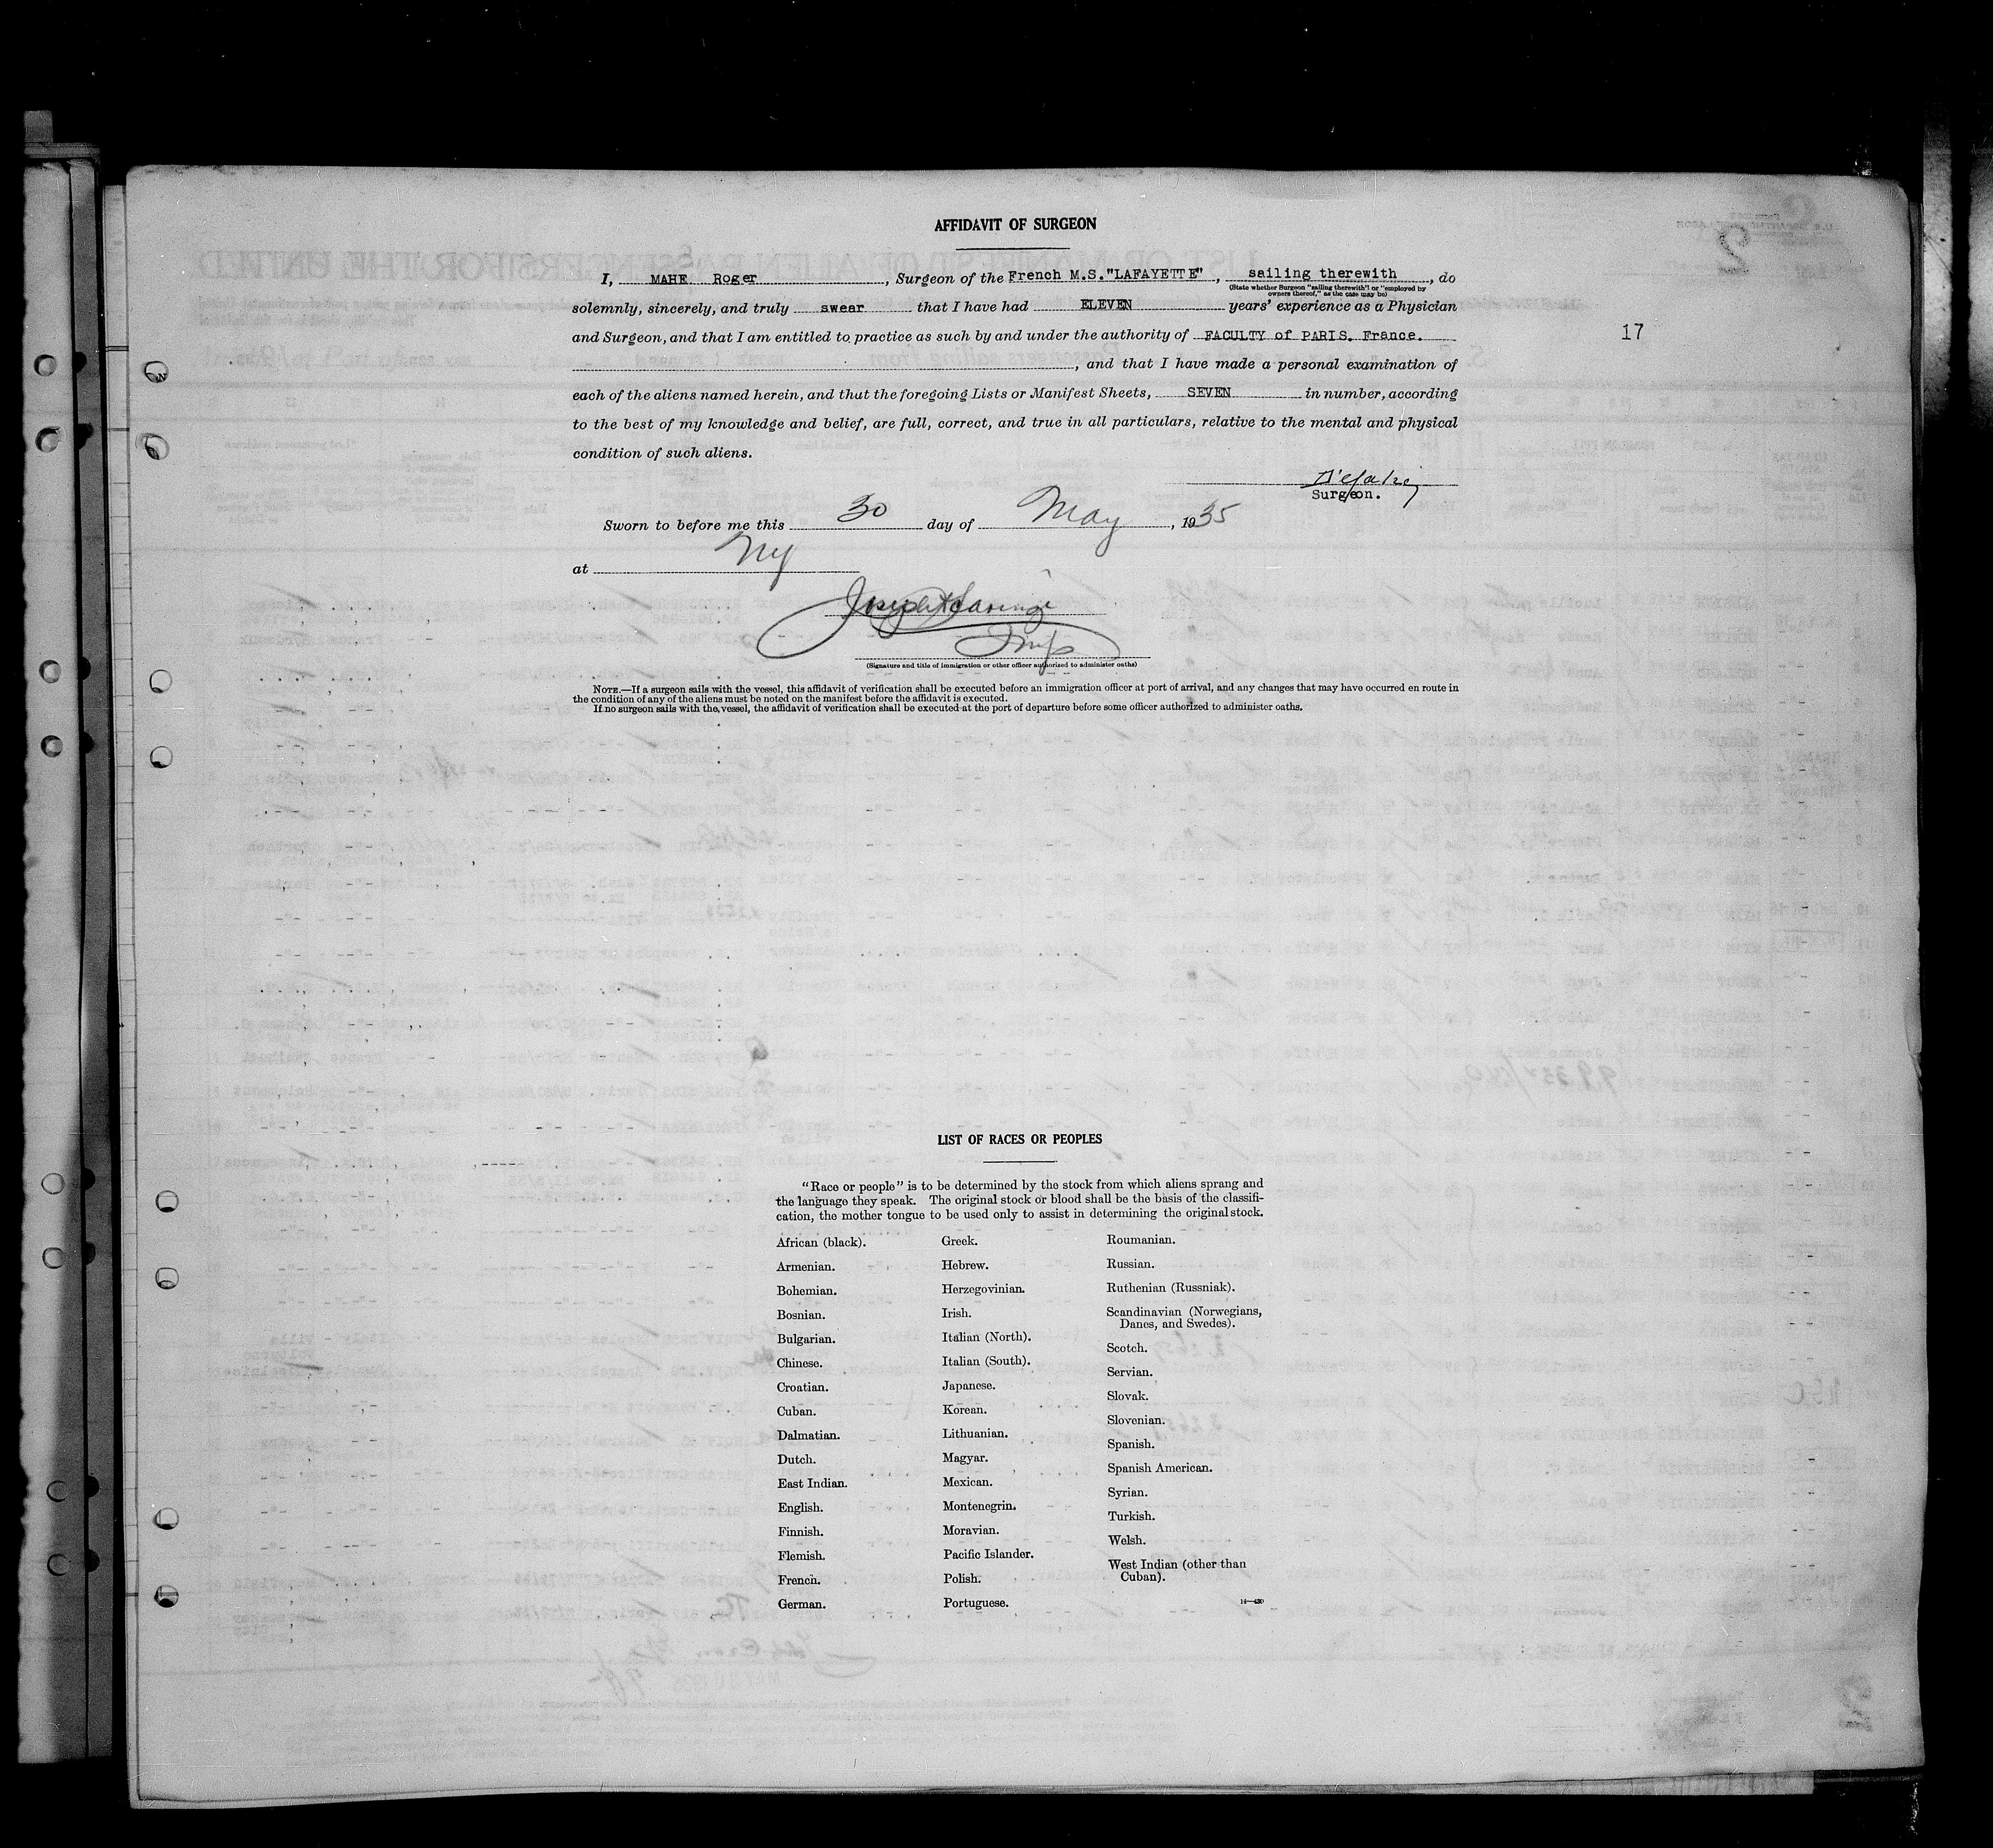 AFFIDAVIT OF SURGEON
I, MAHE Roger, Surgeon of the French M.S."LAFAYETTE", sailing therewith, do
(State whether Surgeon "sailing therewith" or "employed by
owners thereof," as the case may be)
solemnly, sincerely, and truly swear that I have had ELEVEN years' experience as a Physician
and Surgeon, and that I am entitled to practice as such by and under the authority of FACULTY of PARIS. France.
17
, and that I have made a personal examination of
each of the aliens named herein, and that the foregoing Lists or Manifest Sheets, SEVEN in number, according
to the best of my knowledge and belief, are full, correct, and true in all particulars, relative to the mental and physical
condition of such aliens.
Surgeon.
Sworn to before me this 30 day of May, 1935
at NY
Joseph
(Signature and title of immigration or other officer authorized to administer oaths)
NOTE.—If a surgeon sails with the vessel, this affidavit of verification shall be executed before an immigration officer at port of arrival, and any changes that may have occurred en route in
the condition of any of the aliens must be noted on the manifest before the affidavit is executed.
If no surgeon sails with the vessel, the affidavit of verification shall be executed at the port of departure before some officer authorized to administer oaths.
LIST OF RACES OR PEOPLES
"Race or people" is to be determined by the stock from which aliens sprang and
the language they speak. The original stock or blood shall be the basis of the classifi-
cation, the mother tongue to be used only to assist in determining the original stock.
African (black).
Armenian.
Bohemian.
Bosnian.
Bulgarian.
Chinese.
Croatian.
Cuban.
Dalmatian.
Dutch.
East Indian.
English.
Finnish.
Flemish.
French.
German.
Greek.
Hebrew.
Herzegovinian.
Irish.
Italian (North).
Italian (South).
Japanese.
Korean.
Lithuanian.
Magyar.
Mexican.
Montenegrin.
Moravian.
Pacific Islander.
Polish.
Portuguese.
Roumanian.
Russian.
Ruthenian (Russniak).
Scandinavian (Norwegians,
Danes, and Swedes).
Scotch.
Servian.
Slovak.
Slovenian.
Spanish.
Spanish American.
Syrian.
Turkish.
Welsh.
West Indian (other than
Cuban).